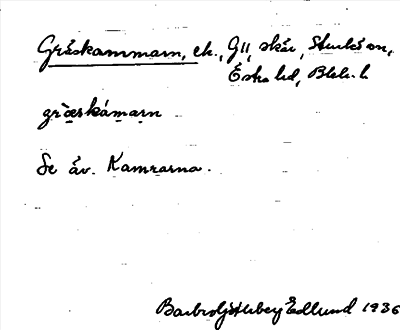 Gräskammarn, ek., GII, skär, Sturkö sn,
Östra hd, Blek. l.
græskámarn
Se äv. Kamrarna.
Edlund 1936